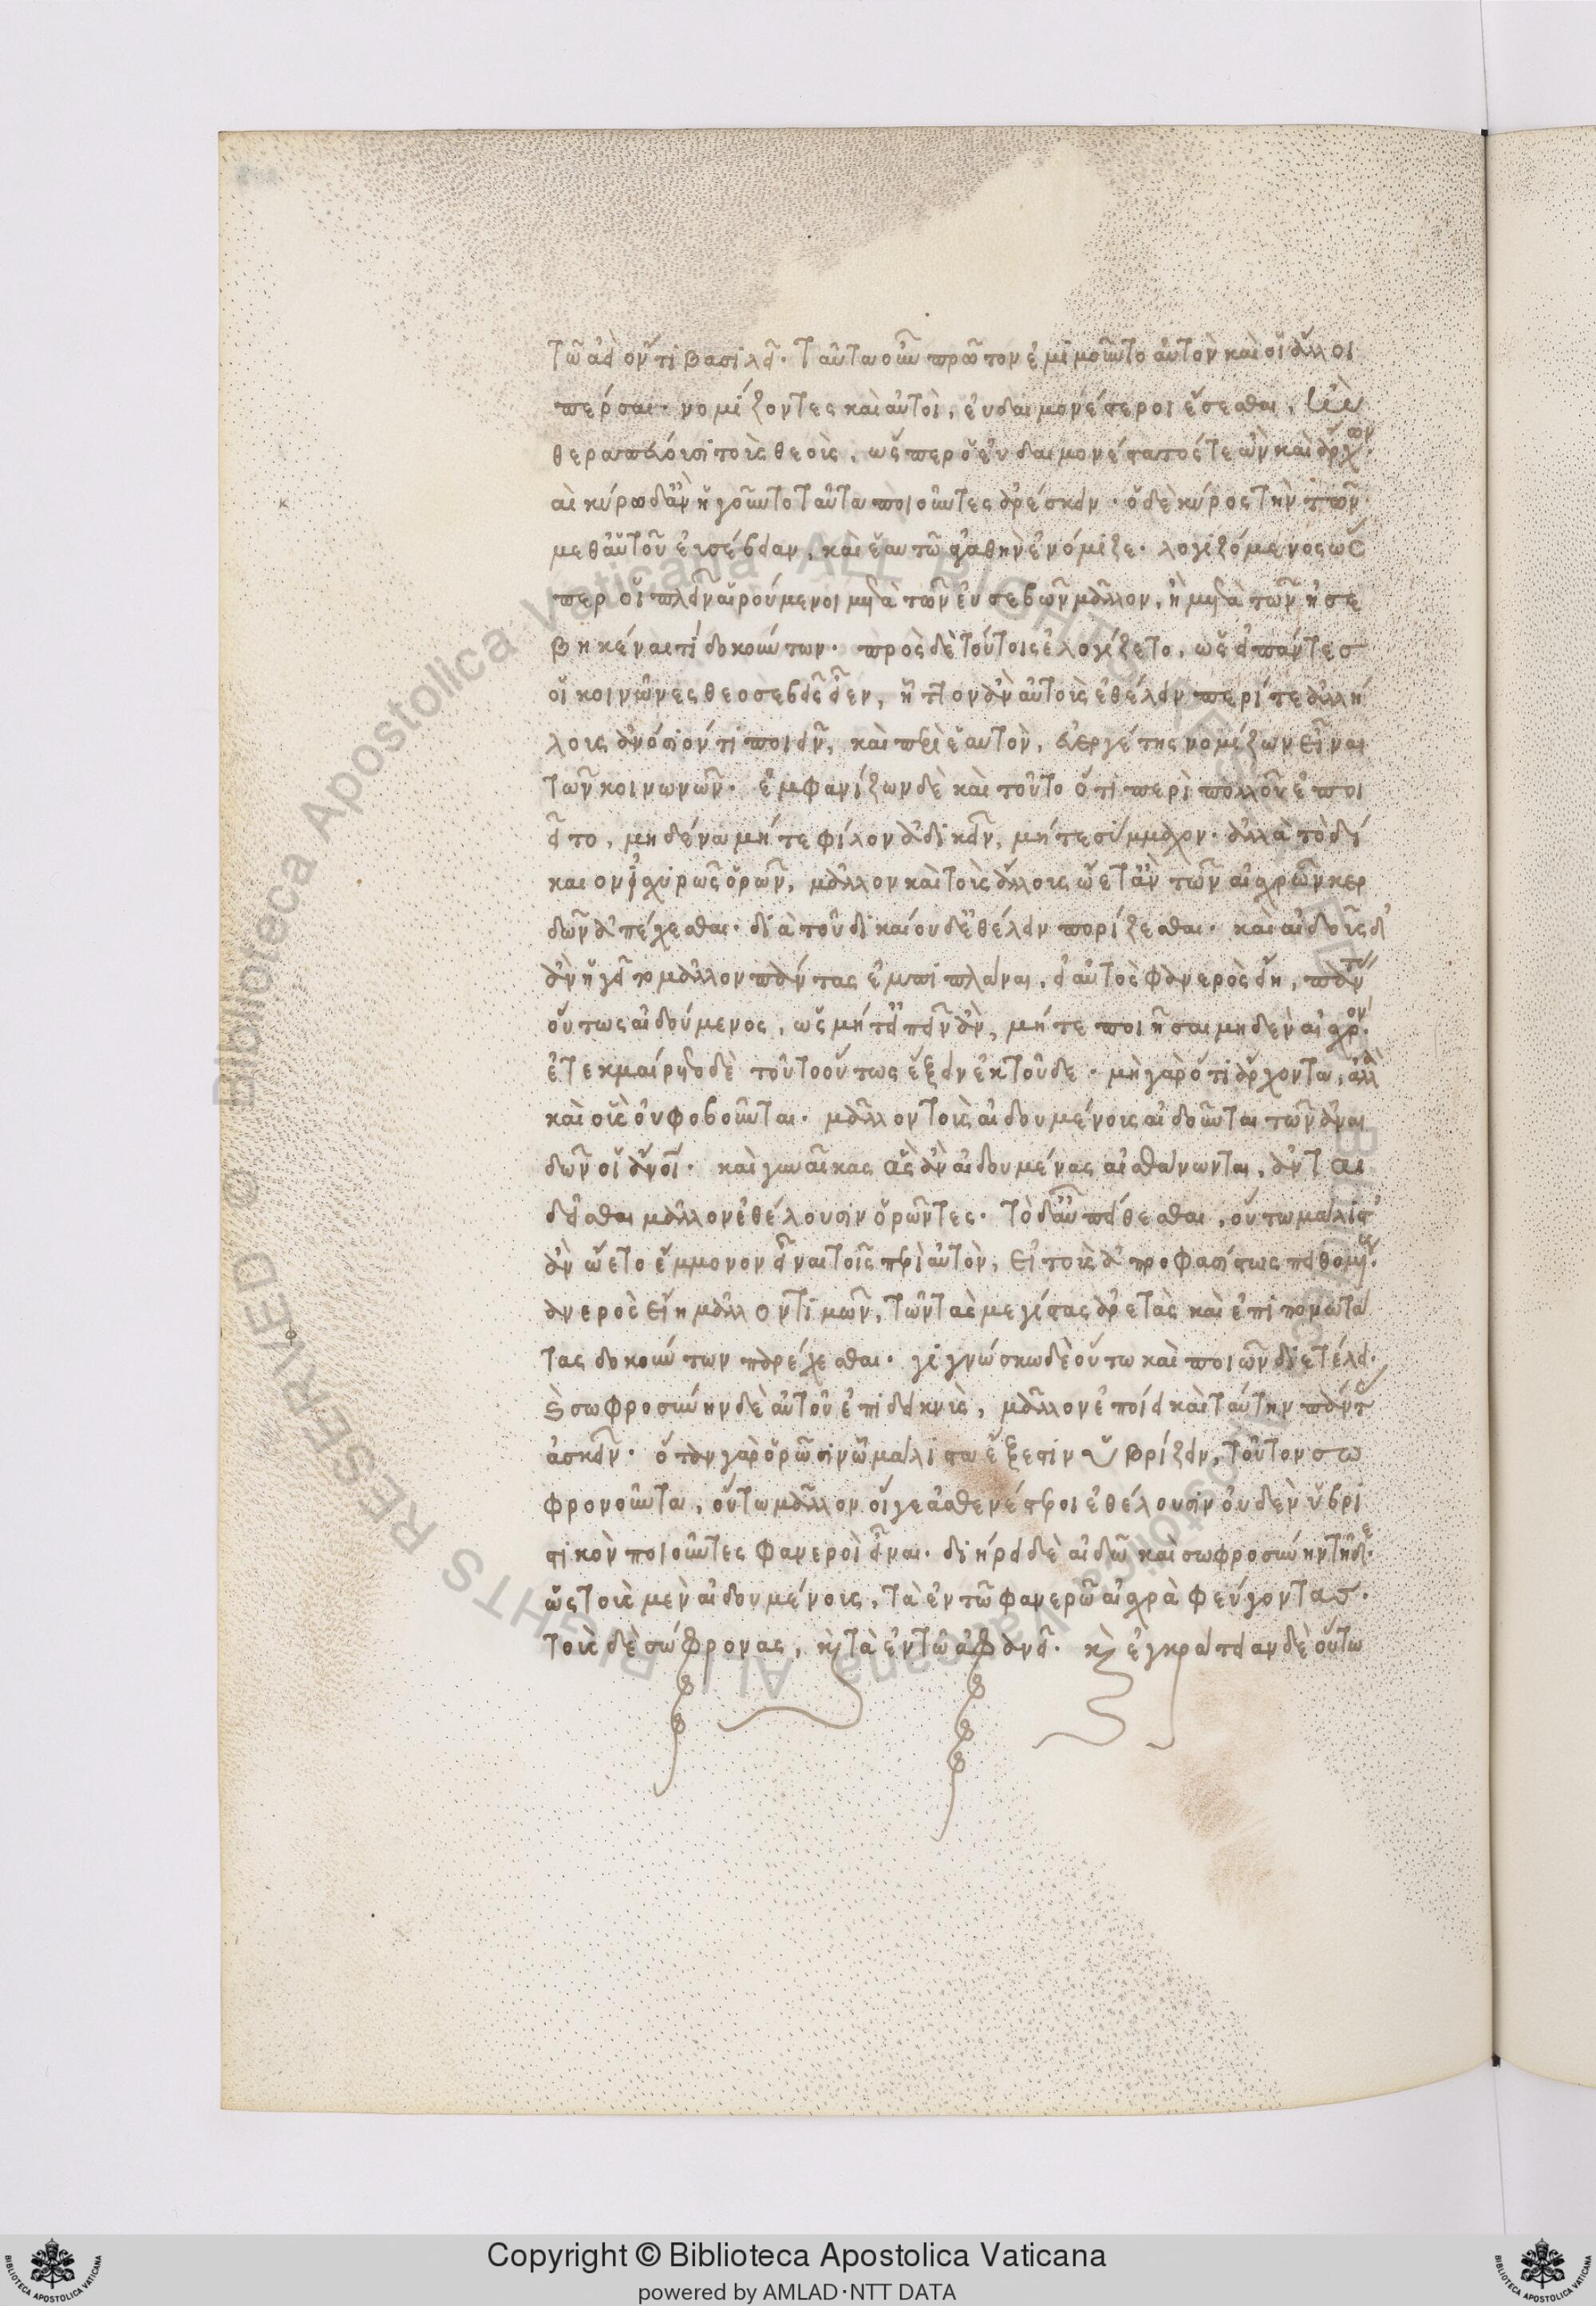 τῶ ἀεὶ ὄντι βασιλεῖ. ταῦτα οὖν πρῶτον ἐμιμοῦντο αὐτὸν καὶ οἱ ἄλλοι
πέρσαι. νομίζοντες καὶ αὐτοὶ, εὐδαιμονέστεροι ἔσεσθαι,
θεραπεύοισι τοὺς θεοὺς, ὥσπερ ὁ εὐδαιμονέστατός τε ὢν καὶ ἄρχων.
αι κύρω δ' ἂν ἡγοῦντο ταῦτα ποιοῦντες ἀρέσκειν. ὁ δὲ κῦρος τὴν τῶν
μεθ' αὑτοῦ εὐσέβειαν, καὶ ἑαυτῶ ἀγαθὴν ἐνόμιζε. λογιζόμενος ὥσ
περ οἱ πλεῖν αἱρούμενοι μετὰ τῶν εὐσεβῶν μᾶλλον, ἢ μετὰ τῶν ἠσε
βηκέναι τι δοκούντων. πρὸς δὲ τούτοις ἐλογίζετο, ὡς εἰ πάντεσ
οἱ κοινῶνες θεοσεβεῖς εἶεν, ἧττον ἂν αὐτοὺς ἐθέλειν περί τε ἀλλή
λους ἀνόσιόν τι ποιεῖν, καὶ περὶ ἑαυτὸν, εὐεργέτης νομίζων εἶναι
τῶν κοινωνῶν. ἐμφανίζων δὲ καὶ τοῦτο ὅτι περὶ πολλοῦ ἐποι
εῖτο, μηδένα μήτε φίλον ἀδικεῖν, μήτε σύμμαχον. ἀλλὰ τὸ δί
καιον ἰσχυρῶς ὁρῶν, μᾶλλον καὶ τοὺς ἄλλους ὤετ' ἂν τῶν αἰσχρῶν κερ
δῶν ἀπέχεσθαι. διὰ τοῦ δικαίου δ' ἐθέλειν πορίζεσθαι. καὶ αἰδοῦς δ'
ἂν ἡγεῖτο μᾶλλον πάντας ἐμπιπλάναι, εἰ αὐτὸς φανερὸς εἴη, πάντας
οὕτως αἰδούμενος, ὡς μήτ' εἰπεῖν ἂν, μήτε ποιῆσαι μηδὲν αἰσχρόν.
ἐτεκμαίρετο δὲ τοῦτο οὕτως ἕξειν ἐκ τοῦδε. μὴ γὰρ ὅτι ἄρχοντα, ἀλλὰ
καὶ οὓς οὐ φοβοῦνται. μᾶλλον τοὺς αἰδουμένους αἰδοῦνται τῶν ἀναι
δῶν οἱ ἄνοι. καὶ γυναῖκας ἃς ἂν αἰδουμένας αἰσθάνωνται, ἀνται
δεῖσθαι μᾶλλον ἐθέλουσιν ὁρῶντες. τὸ δ' αὖ πείθεσθαι, οὕτω μάλιστ'
ἂν ὤετο ἔμμονον εἶναι τοῖς περὶ αὐτὸν, εἰ τοὺς ἀπροφασίστως πειθομένους.
ανερὸς εἴη μᾶλλον τιμῶν, τῶν τὰς μεγίστας ἀρετὰς καὶ ἐπιπονωτά
τας δοκούντων παρέχεσθαι. γιγνώσκω δὲ οὕτω καὶ ποιῶν διετέλει.
σωφροσύνην δὲ αὐτοῦ ἐπιδεικνὺς, μᾶλλον ἐποίει καὶ ταύτην πάντας
ἀσκεῖν. ὅταν γὰρ ὁρῶσιν ὧ μάλιστα ἔξεστιν ὑβρίζειν, τοῦτον σω
φρονοῦντα, οὕτω μᾶλλον οἵ γε ἀσθενέστεροι ἐθέλουσιν οὐδὲν ὑβρι
στικὸν ποιοῦντες φανεροὶ εἶναι. διήρει δὲ αἰδῶ καὶ σωφροσύνην τῆδε.
ὡς τοὺς μὲν αἰδουμένους, τὰ ἐν τῶ φανερῶ αἰσχρὰ φεύγοντασ.
τοὺς δὲ σώφρονας, καὶ τὰ ἐν τῶ ἀφανεῖ. καὶ ἐγκράτειαν δὲ οὕτω
Copyright © Biblioteca Apostolica Vaticana
powered by AMLAD·NTT DATA